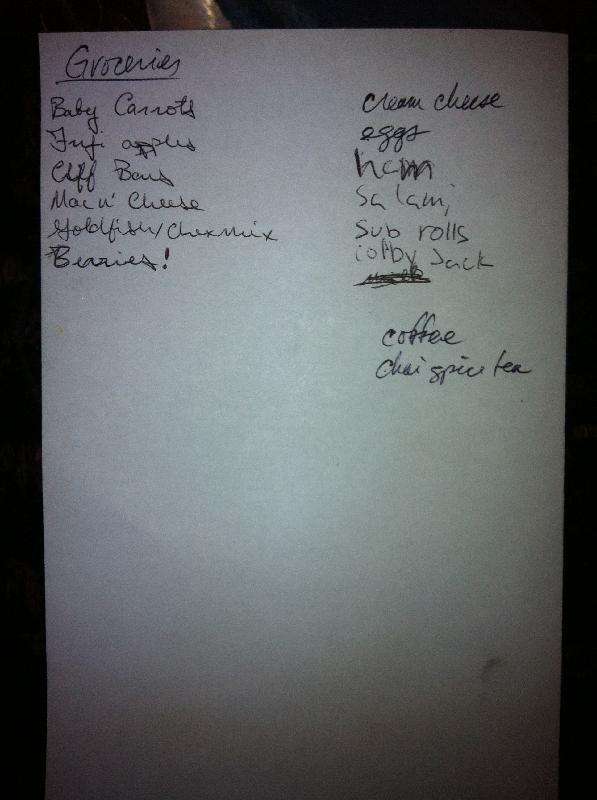 Groceries
Baby Carrots
Fuji apples
Cliff Bars
Mac n' Cheese
Goldfish/Chex mix
Berries!
cream cheese
eggs
ham
Salami
Sub rolls
colby Jack
coffee
chai spice tea